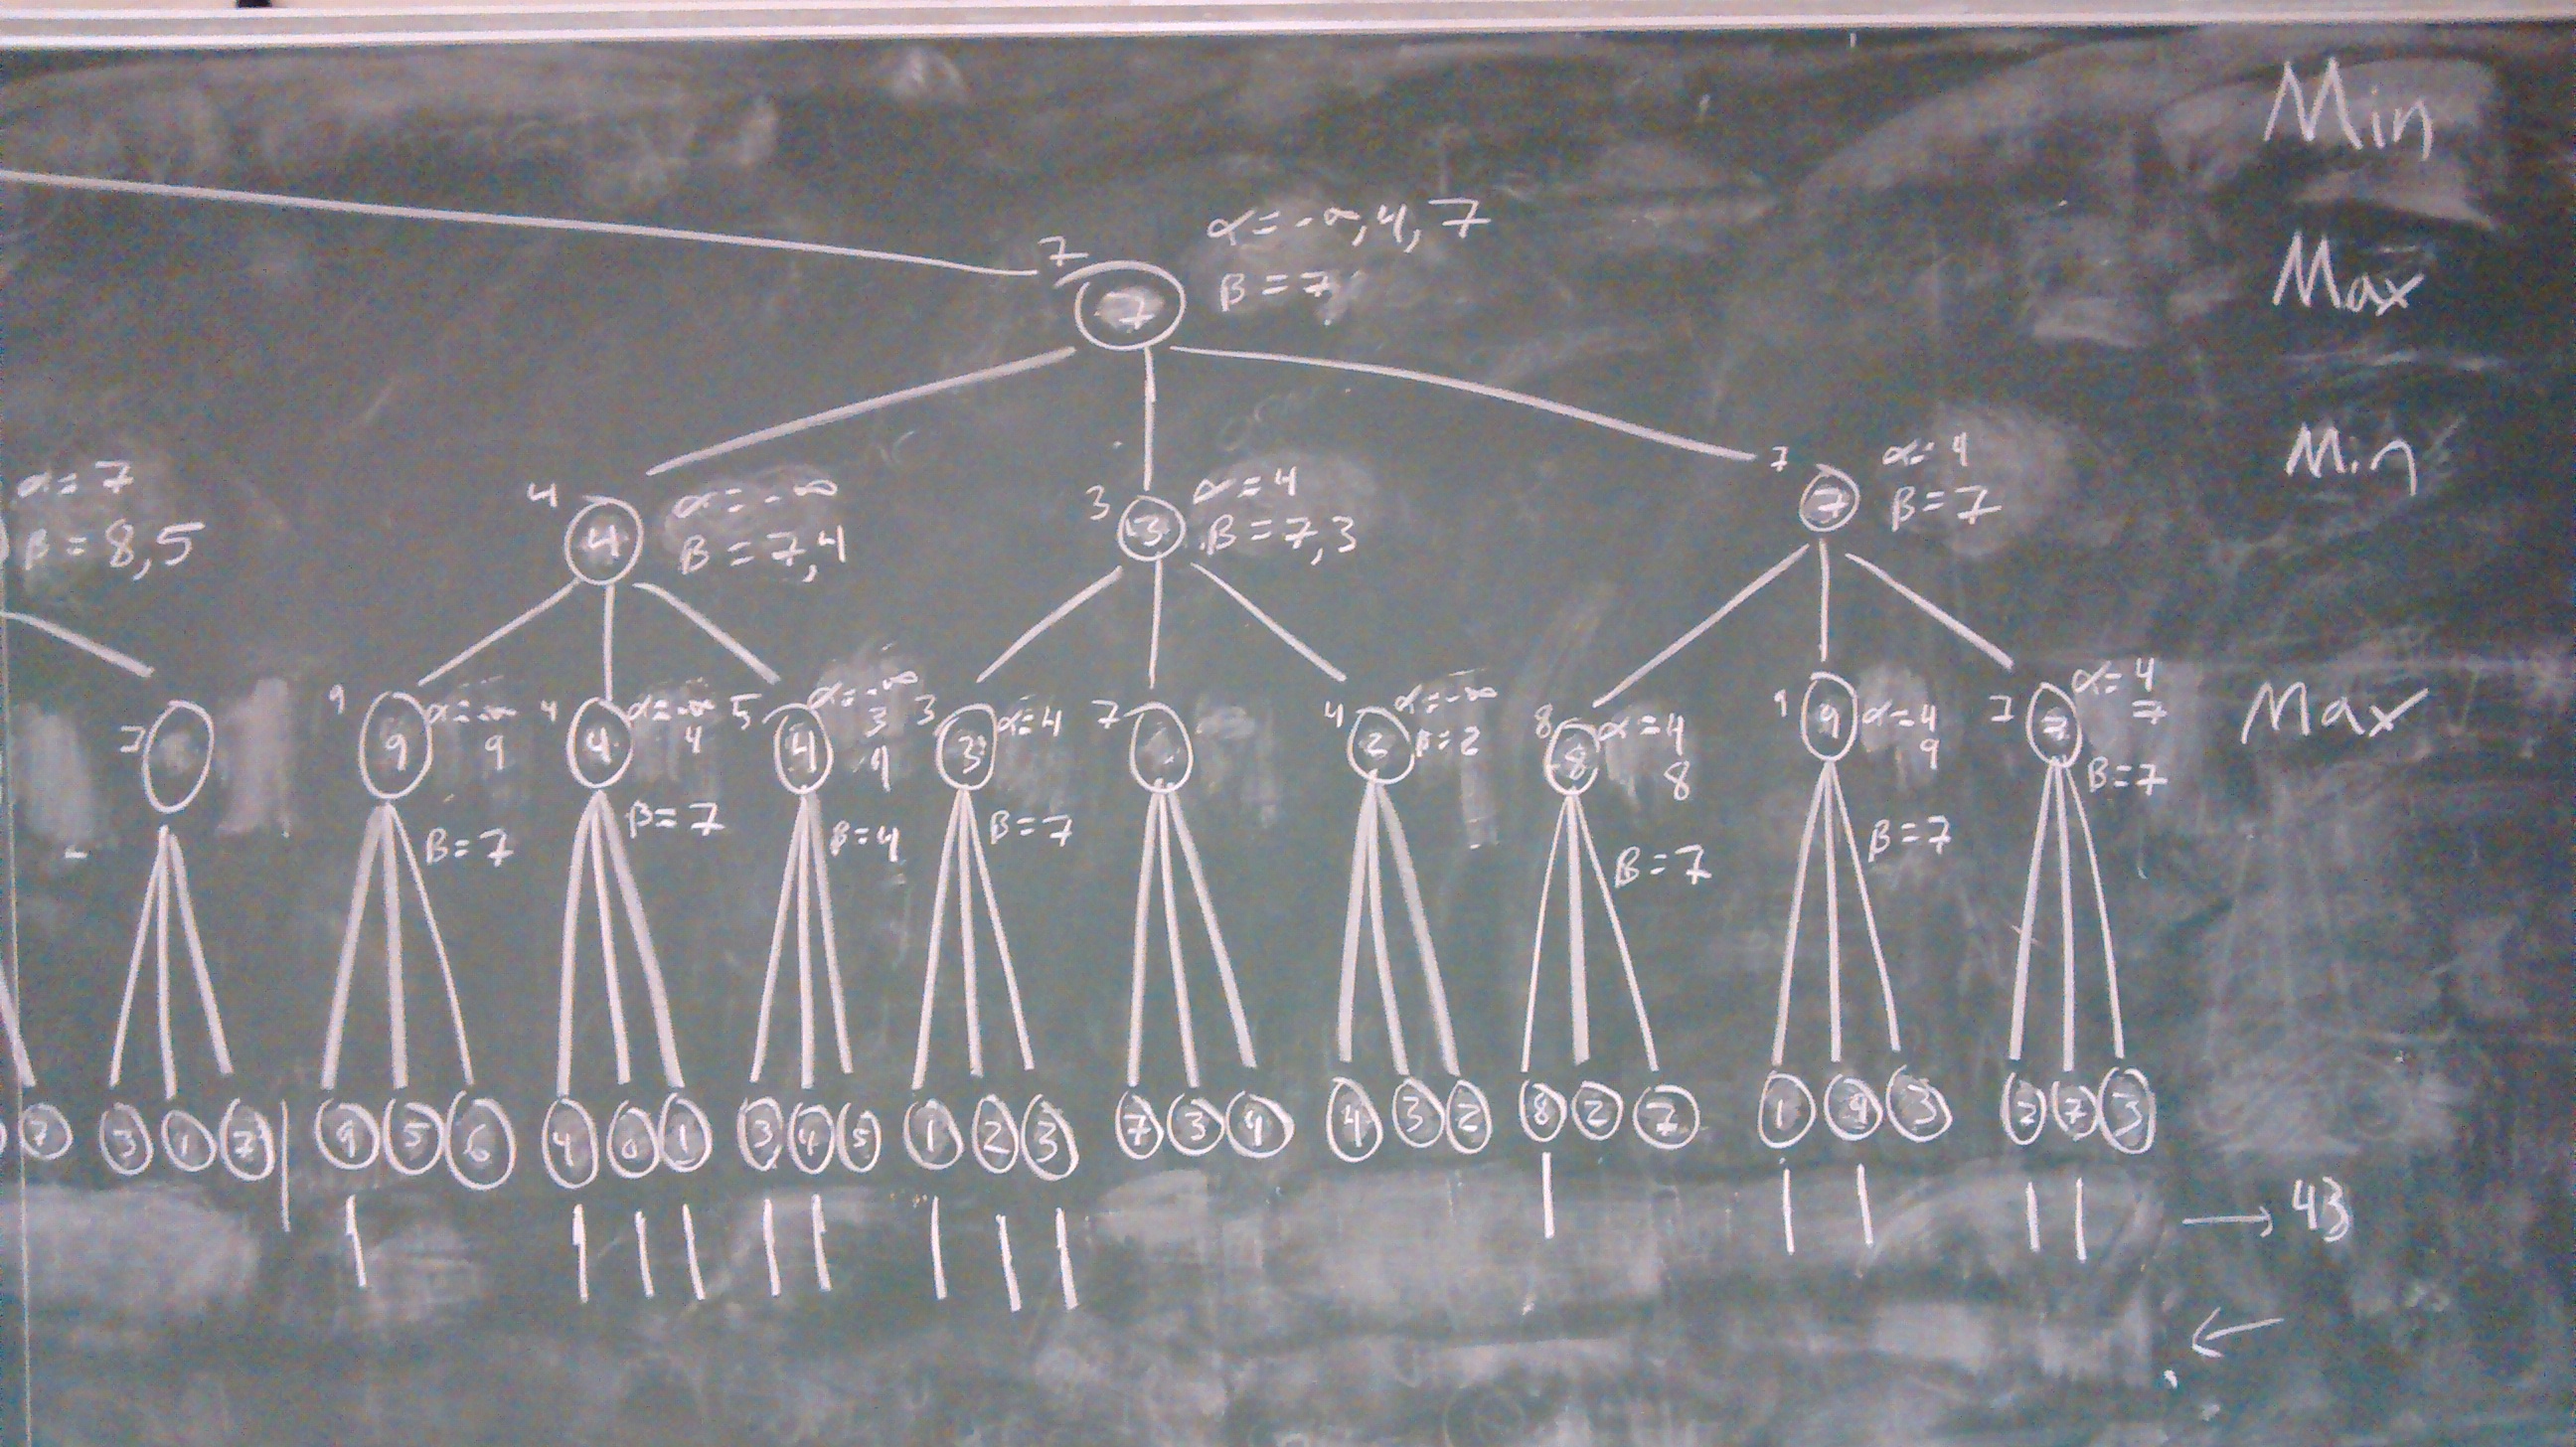 Min
α = -∞, 4, 7
7
β = 7
7
Max
α = 7
β = 8,5
4
α = -∞
β = 7,4
4
3
α = 4
β = 7,3
3
7
α = 4
β = 7
7
Min
9
9
α = -∞
9
β = 7
4
4
α = -∞
4
β = 7
5
4
α = -∞
3
4
β = 4
3
3
α = 4
β = 7
7
4
2
α = -∞
β = 2
8
8
α = 4
8
β = 7
9
9
α = 4
9
β = 7
7
7
α = 4
7
β = 7
Max
3 1 7 | 9 5 6 4 0 1 3 4 5 1 2 3 7 3 4 4 3 2 8 2 7 1 9 3 2 7 3
→ 43
←